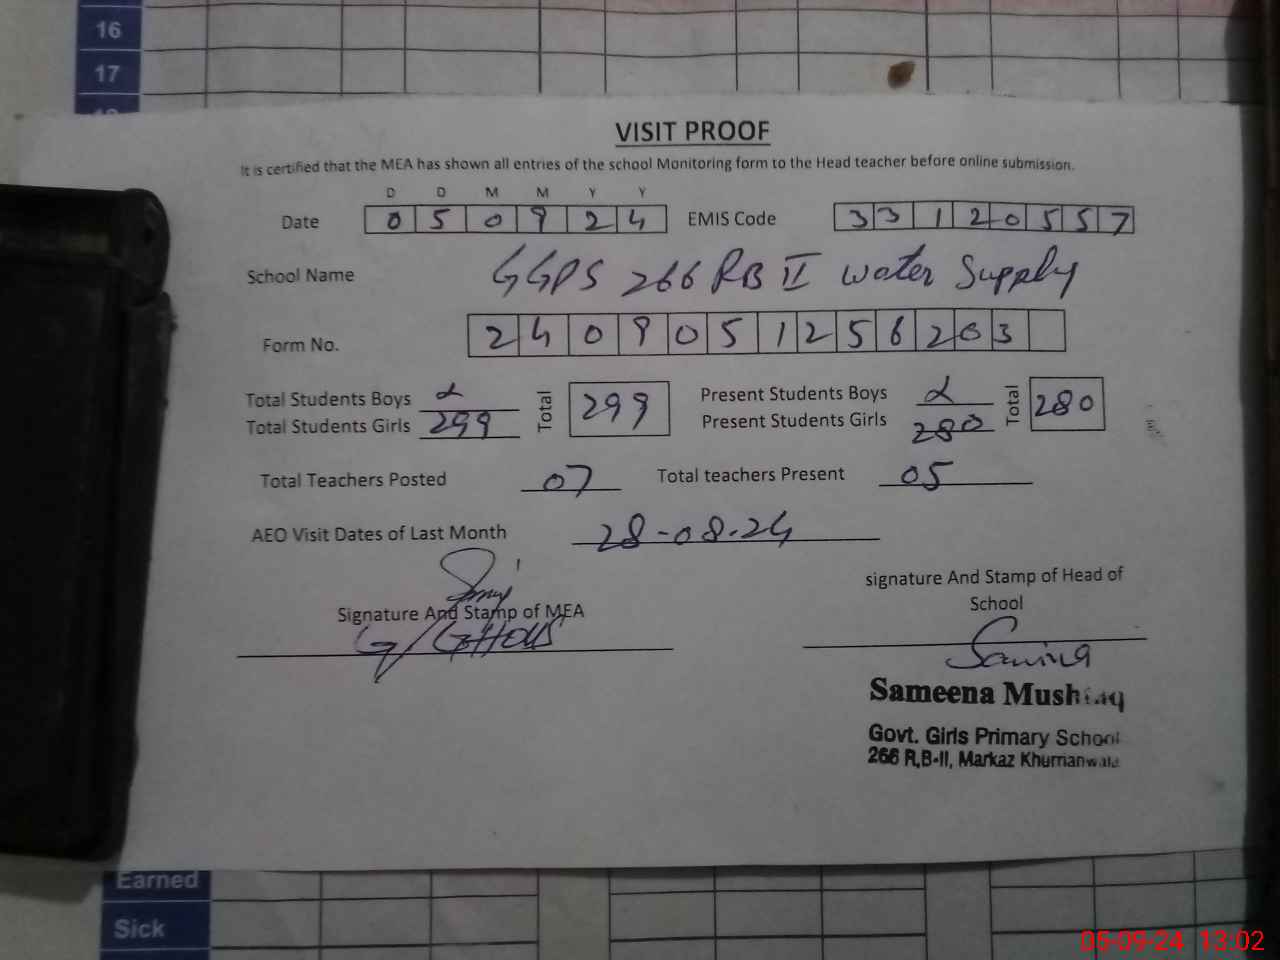 16
17
18
VISIT PROOF
It is certified that the MEA has shown all entries of the school Monitoring form to the Head teacher before online submission.
D D M M Y Y
Date 0 5 0 9 2 4 EMIS Code 3 3 1 2 0 5 5 7
School Name GGPS 266 RB II Water Supply
Form No. 2 4 0 9 0 5 1 2 5 6 2 0 3
Total Students Boys Total 299 Present Students Boys Total 280
Total Students Girls 299 Present Students Girls 280
Total Teachers Posted 07 Total teachers Present 05
AEO Visit Dates of Last Month 28-08-24
signature And Stamp of Head of
School
Signature And Stamp of MEA
Sameena Mushtaq
Govt. Girls Primary School
266 R,B-II, Markaz Khurrianwala
Earned
Sick
05-09-24 13:02